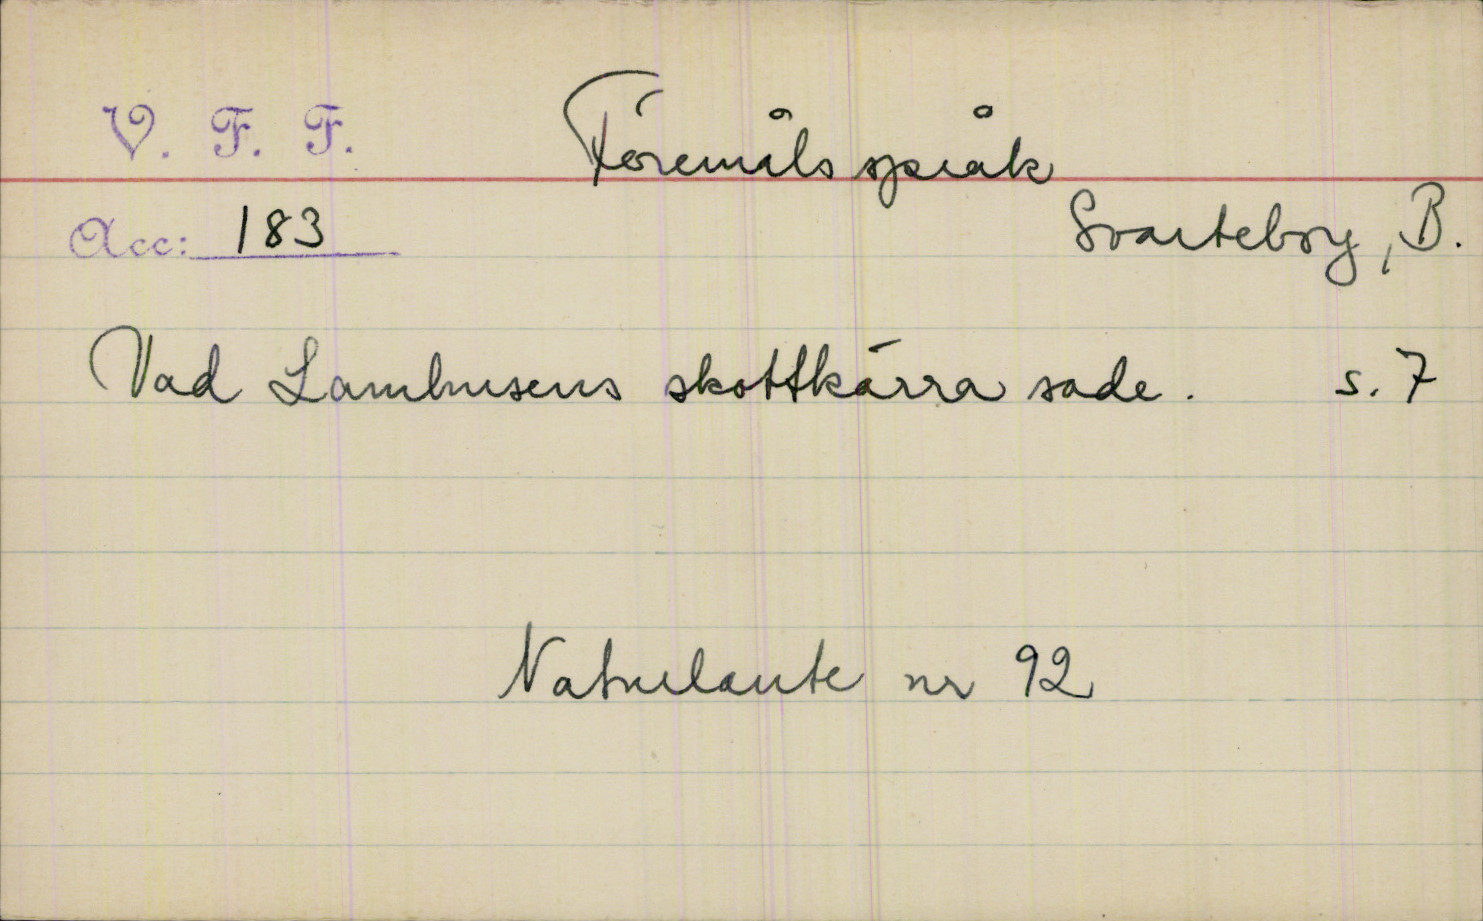 V. F. F. Föremålsspråk
Acc: 183 Svarteborg, B.
Vad Lambusens skottkärra sade. s. 7
Naturlaute nr 92